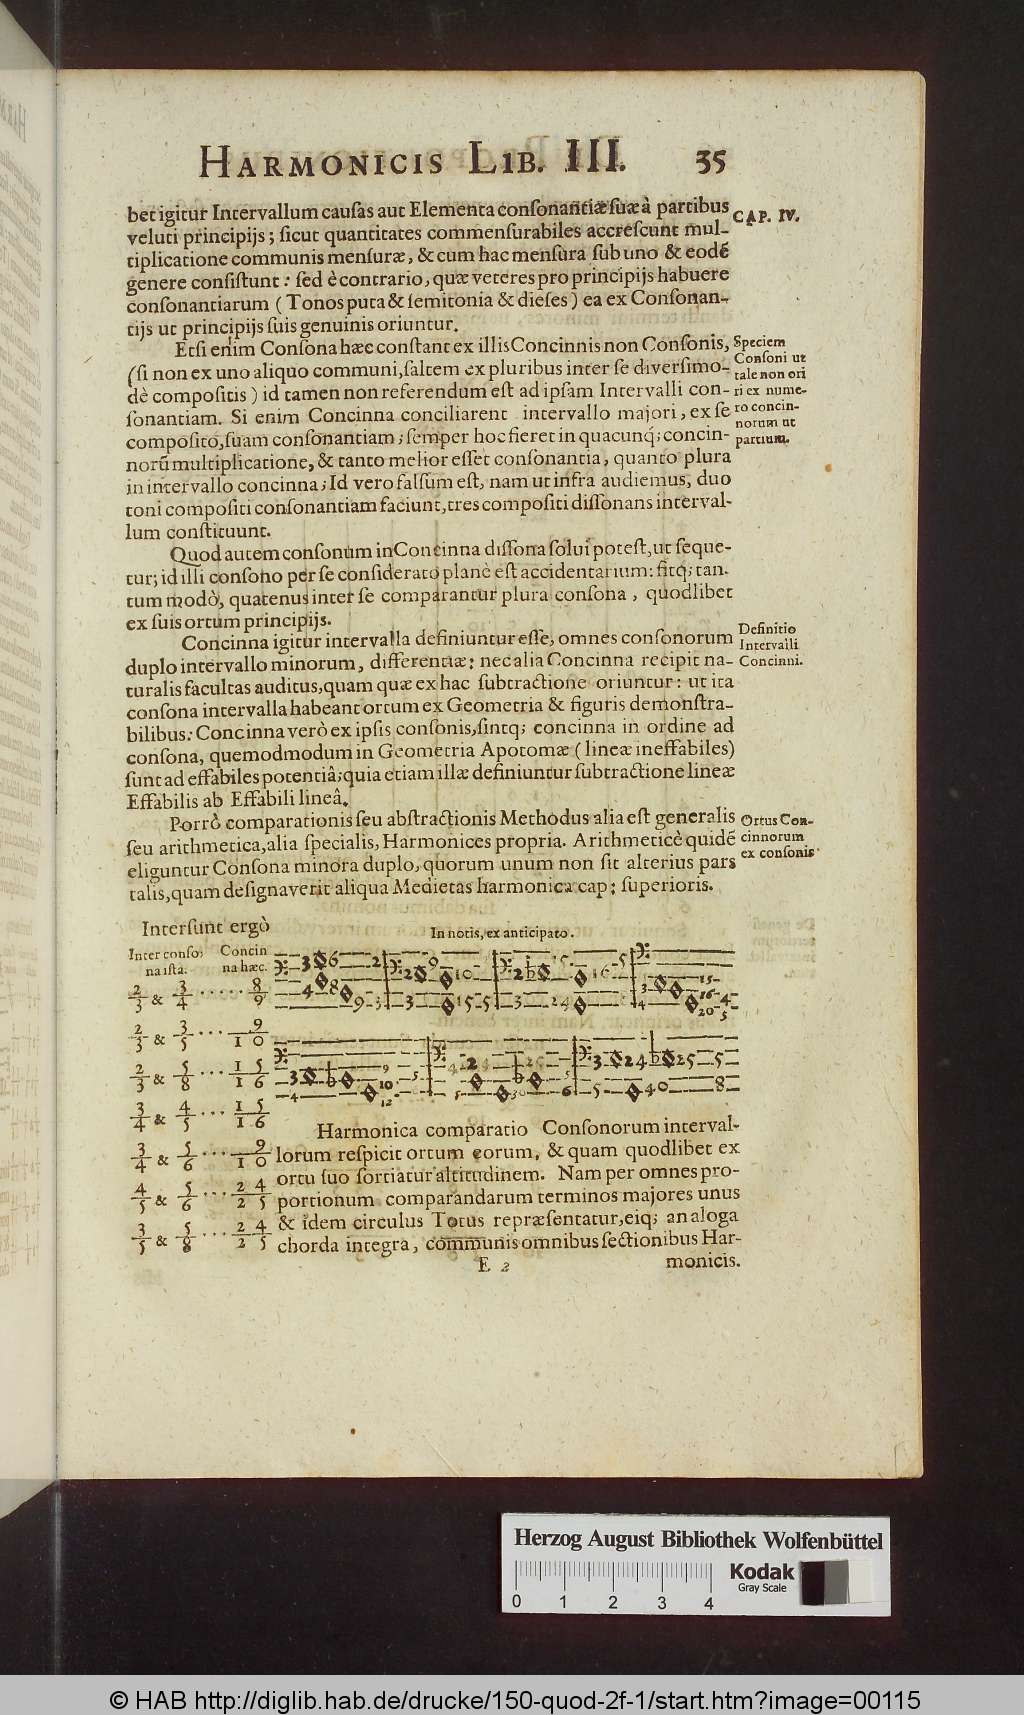 HARMONICIS LIB. III. 35
bet igitur Intervallum causas aut Elementa consonantiæ suæ à partibus
CAP. IV.
veluti principijs; sicut quantitates commensurabiles accrescunt mul-
tiplicatione communis mensuræ, & cum hac mensura sub uno & eodē
genere consistunt: sed è contrario, quæ veteres pro principijs habuere
consonantiarum (Tonos puta & semitonia & dieses) ea ex Consonan-
tijs ut principijs suis genuinis oriuntur.
Etsi enim Consona hæc constant ex illis Concinnis non Consonis,
(si non ex uno aliquo communi, saltem ex pluribus inter se diversimo-
dè compositis) id tamen non referendum est ad ipsam Intervalli con-
sonantiam. Si enim Concinna conciliarent intervallo majori, ex se
composito, suam consonantiam; semper hoc fieret in quacunq; concin-
norū multiplicatione, & tanto melior esset consonantia, quanto plura
in intervallo concinna; Id vero falsum est, nam ut infra audiemus, duo
toni compositi consonantiam faciunt, tres compositi dissonans interval-
lum constituunt.
Speciem
Consoni ut
tale non ori
ri ex nume-
ro concin-
norum ut
partium.
Quod autem consonum in Concinna dissona solui potest, ut seque-
tur; id illi consono per se considerato planè est accidentarium: fitq; tan-
tum modò, quatenus inter se comparantur plura consona, quodlibet
ex suis ortum principijs.
Concinna igitur intervalla definiuntur esse, omnes consonorum
duplo intervallo minorum, differentiæ: nec alia Concinna recipit na-
turalis facultas auditus, quam quæ ex hac subtractione oriuntur: ut ita
consona intervalla habeant ortum ex Geometria & figuris demonstra-
bilibus: Concinna verò ex ipsis consonis, sintq; concinna in ordine ad
consona, quemodmodum in Geometria Apotomæ (lineæ ineffabiles)
sunt ad effabiles potentiâ; quia etiam illæ definiuntur subtractione lineæ
Effabilis ab Effabili lineâ.
Definitio
Intervalli
Concinni.
Porrò comparationis seu abstractionis Methodus alia est generalis
seu arithmetica, alia specialis, Harmonices propria. Arithmeticè quidē
eliguntur Consona minora duplo, quorum unum non sit alterius pars
talis, quam designaverit aliqua Medietas harmonica cap: superioris.
Ortus Con-
cinnorum
ex consonis
Intersunt ergò
Inter conso: Concin
na ista. na hæc.
2/3 & 3/4 ..... 8/9
2/3 & 3/5 ... 9/10
2/3 & 5/8 ... 15/16
3/4 & 4/5 ... 15/16
3/4 & 5/6 ... 9/10
4/5 & 5/6 ... 24/25
3/5 & 5/8 ... 24/25
In notis, ex anticipato.
Harmonica comparatio Consonorum interval-
lorum respicit ortum eorum, & quam quodlibet ex
ortu suo sortiatur altitudinem. Nam per omnes pro-
portionum comparandarum terminos majores unus
& idem circulus Totus repræsentatur, eiq; analoga
chorda integra, communis omnibus sectionibus Har-
E 2 monicis.
Herzog August Bibliothek Wolfenbüttel
Kodak
Gray Scale
0 1 2 3 4
© HAB http://diglib.hab.de/drucke/150-quod-2f-1/start.htm?image=00115